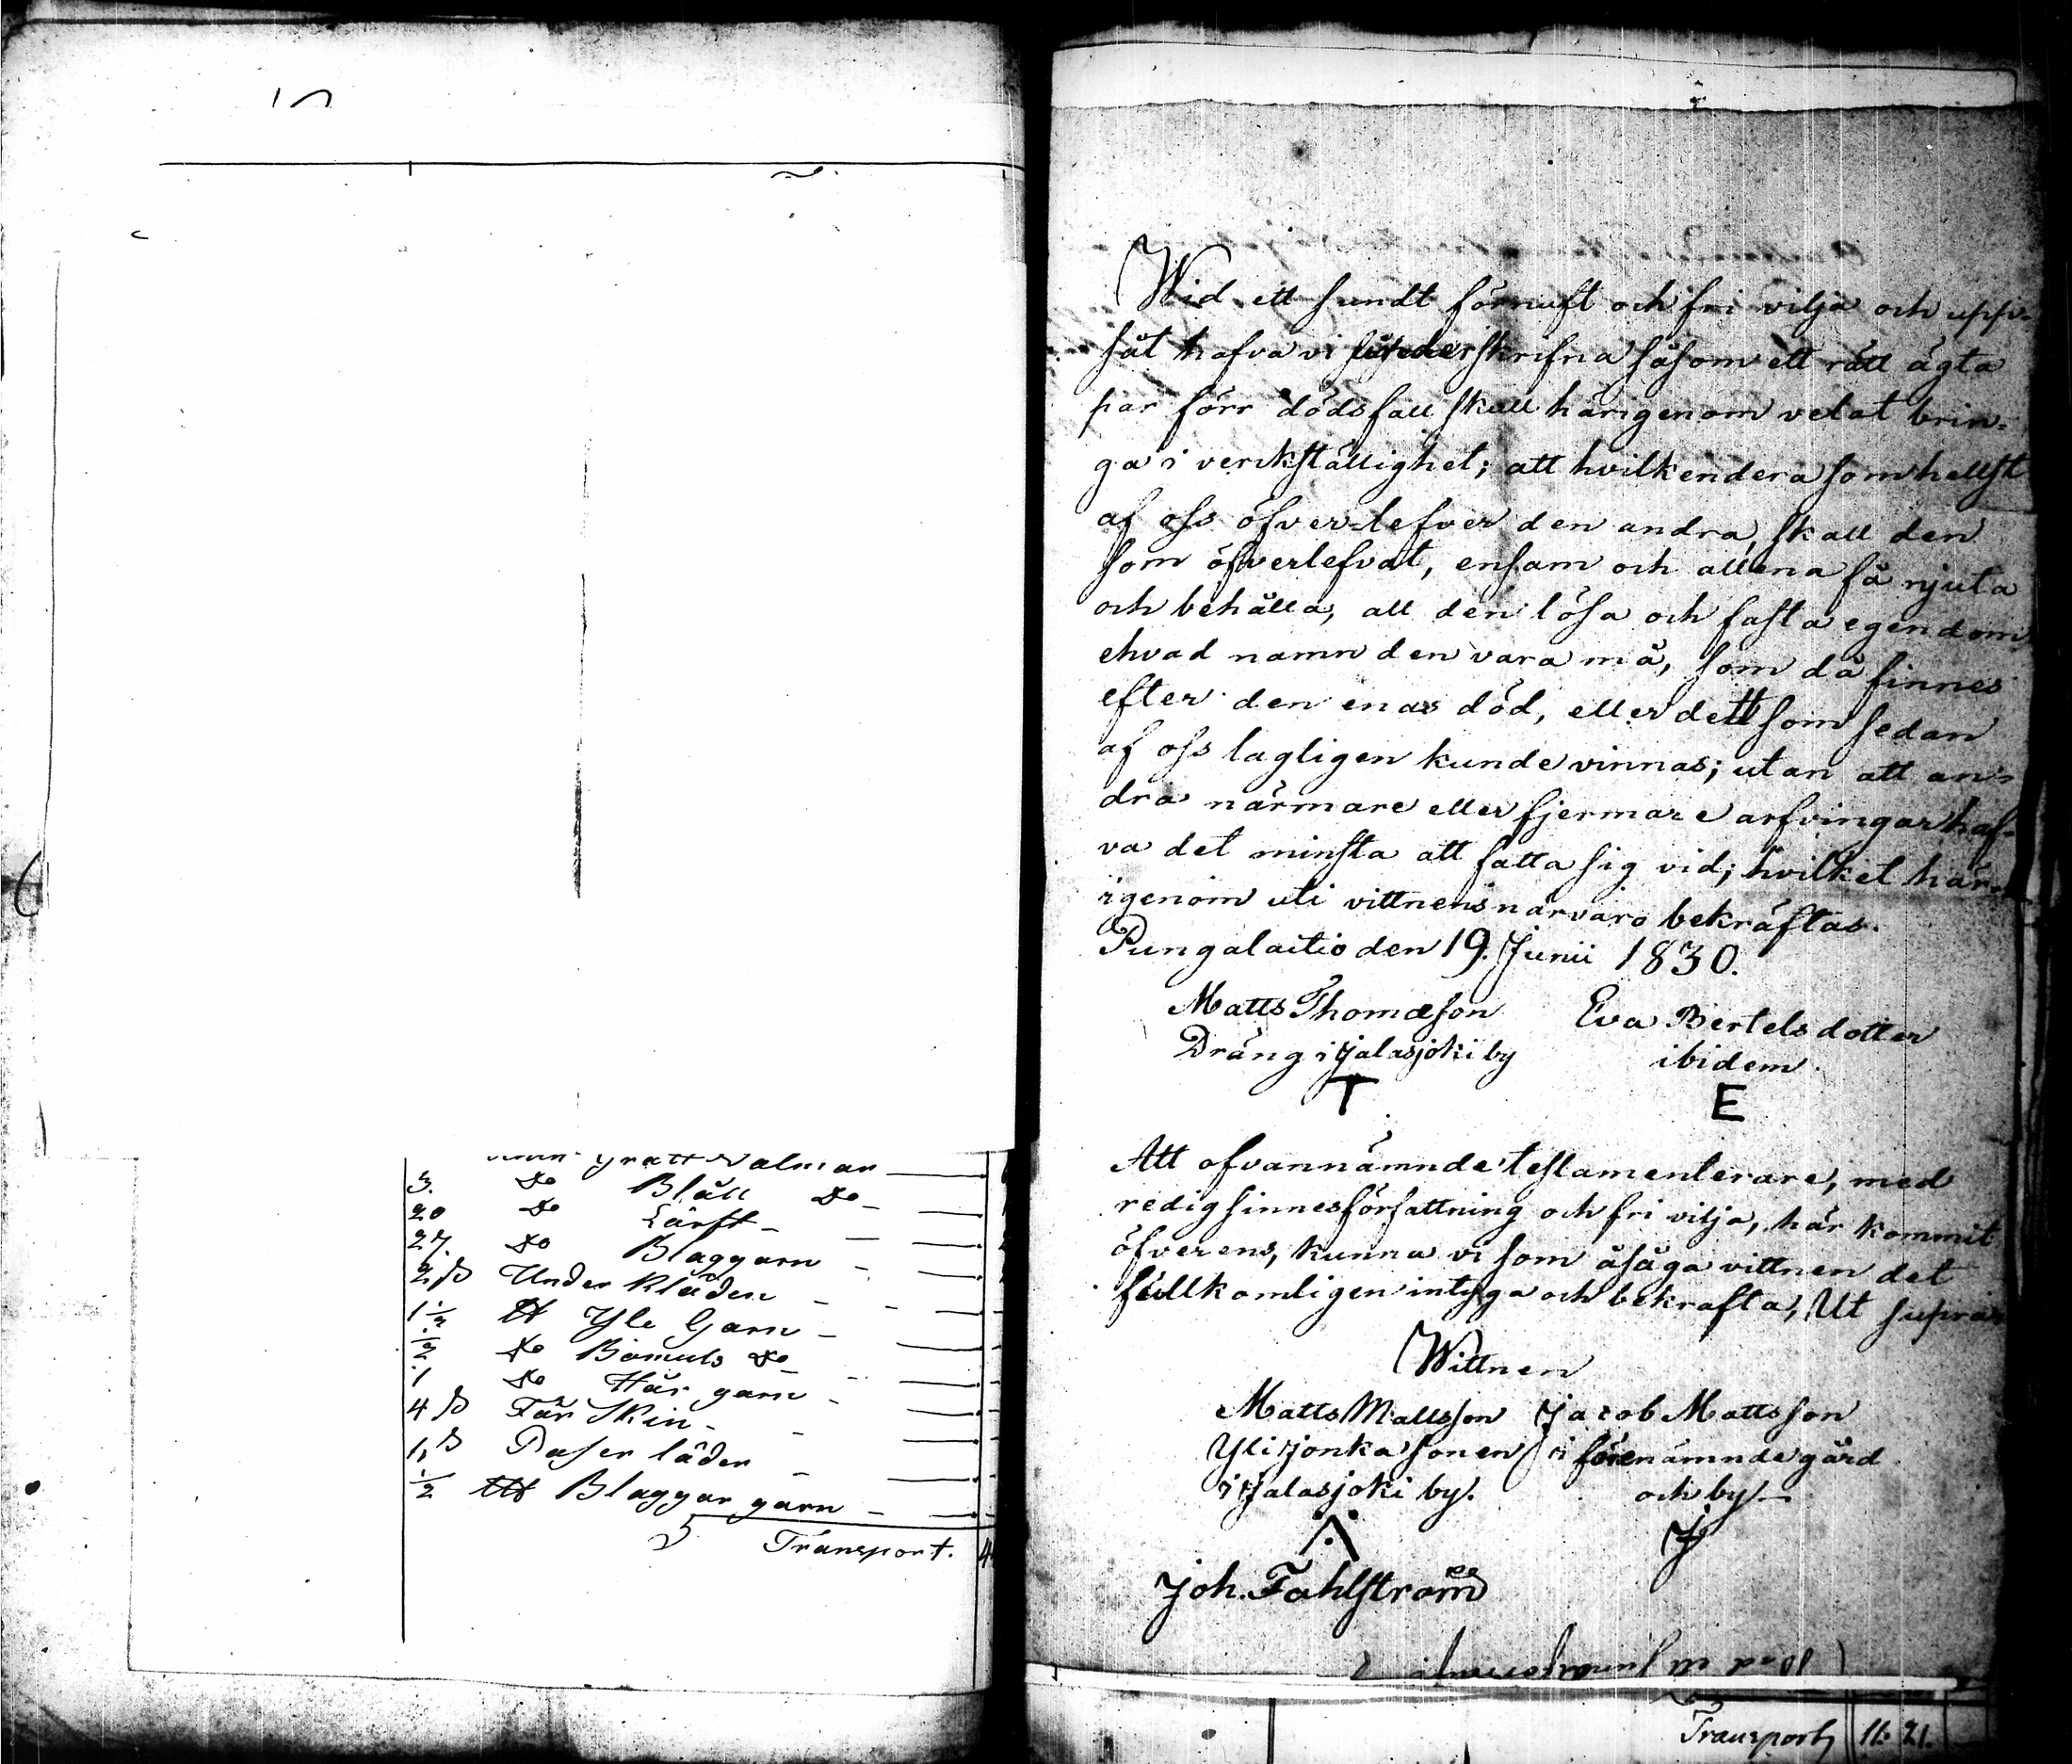 grått Valmar
3. Do Blått Do
20 Do Lärft
27. Do Blaggarn
2 ß Under kläden
1 1/2 ℔ Yle Garn
1/2 Do Bomuls Do
1 Do Hår garn
4 ß Får Skin
1 ß Paser läder
1/2 ℔ Blaggar garn
Transport. 4
Wid ett sundt förnuft och fri vilja och upp-
såt hafva vi underskrifna såsom ett rätt ägta
par förr dödsfall skull härigenom velat brin-
ga i verkställighet; att hvilkendera som hellst
af oss öfver-lefver den andra, skall den
som öfverlefvat, ensam och allena få njuta
och behålla, all den lösa och fasta egendom
ehvad namn den vara må, som då finnes
efter den enas död, eller dett som sedan
af oss lagligen kunde vinnas; utan att an-
dra närmare eller fjermare arfvingar haf-
va det minsta att fatta sig vid; hvilket här-
igenom uti vittnens närvaro bekräftas.
Pungalaitio den 19. Junii 1830.
Matts Thomæson Eva Bertelsdotter
Dräng i Jalasjoki by ibidem
T E
Att ofvannämnde testamenterare, med
redig sinnesförfattning och fri vilja, här kommit
öfverens, kunna vi som åsåga vittnen det
fullkomligen intyga och bekrafta, Ut supra
Wittnen
Matts Mattsson Jacob Mattsson
Ylizjonka sonen i förenämnde gård
i Jalasjoki by. och by
J
Joh. Fahlström
Transport 11. 21.